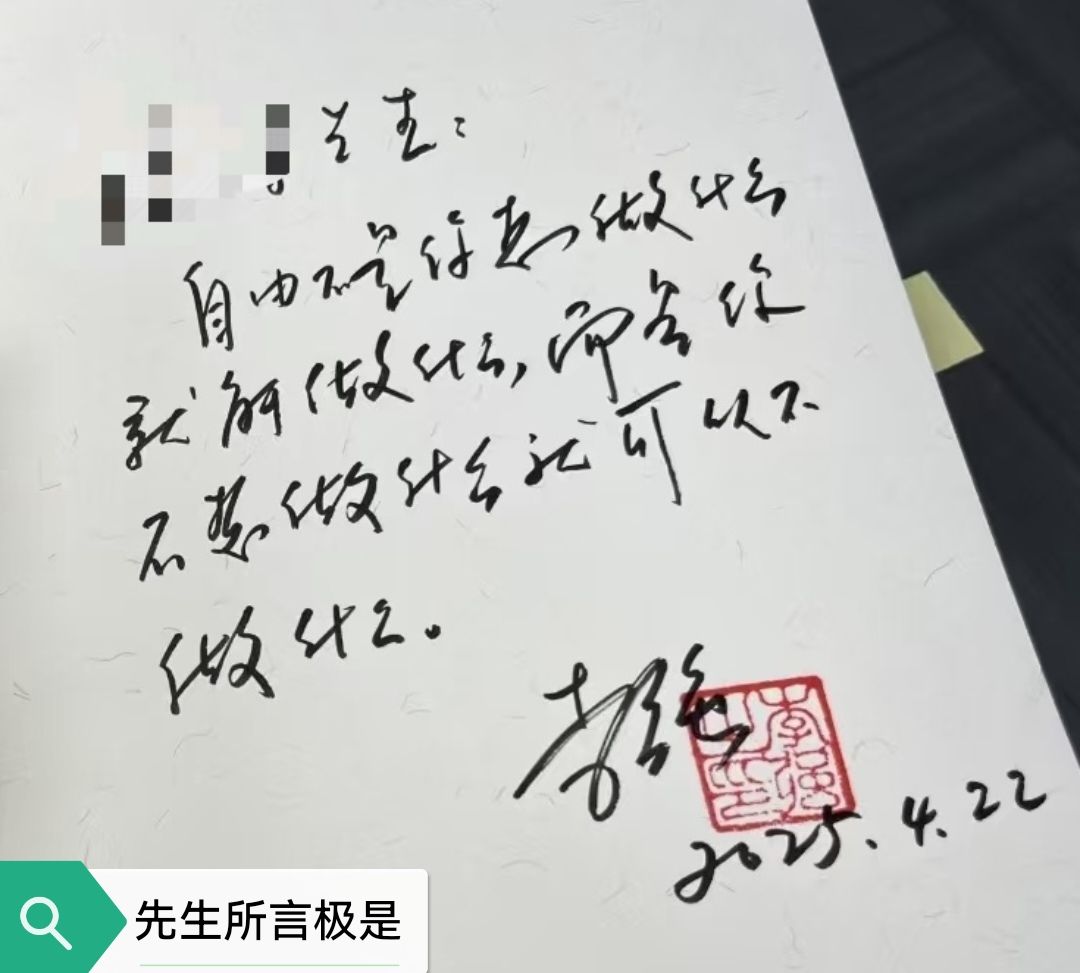 先生:
自由不是你想做什么
就能做什么,而是你
不想做什么就可以不
做什么。
李强
2025.4.22
先生所言极是